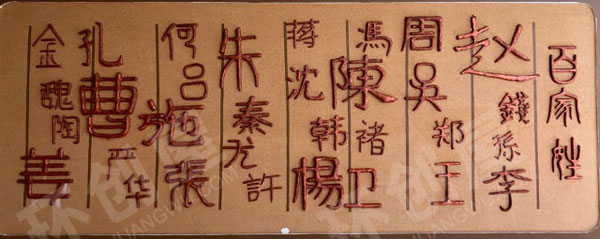 百家姓
赵錢孫李
周吳郑王
馮陳褚卫
蒋沈韩楊
朱秦尤許
何吕施張
孔曹严华
金魏陶姜
环创屋